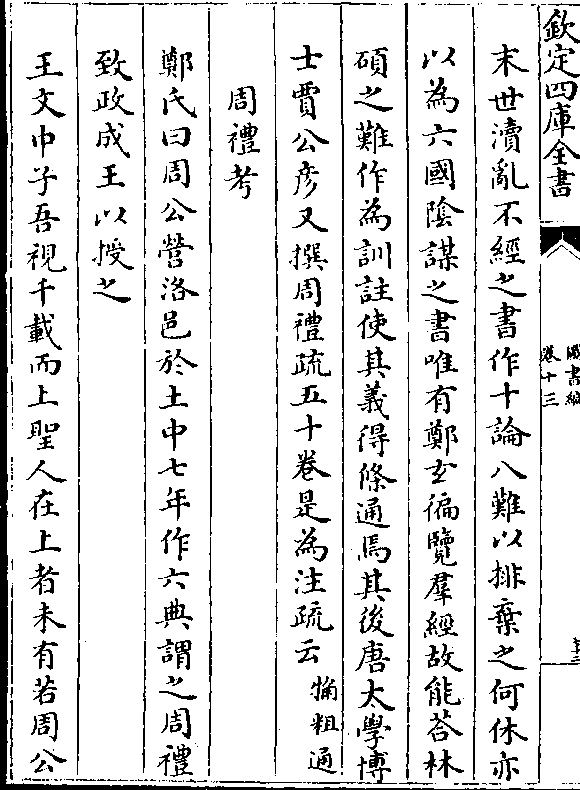 欽定四庫全書
圖書編
卷十三
末世瀆亂不經之書作十論八難以排棄之何休亦
以為六國陰謀之書唯有鄭玄徧覽羣經故能荅林
碩之難作為訓註使其義得條通焉其後唐太學博
士賈公彦又撰周禮疏五十卷是為注疏云
周禮考
鄭氏曰周公營洛邑於土中七年作六典謂之周禮
致政成王以授之
王文中子吾視千載而上聖人在上者未有若周公